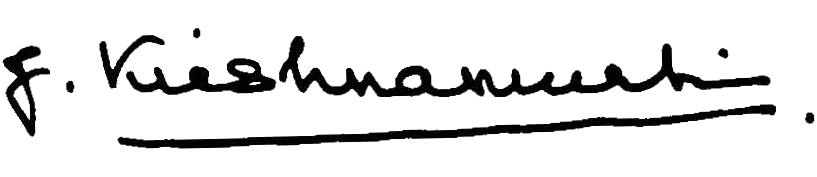 J. Krishnamurti.